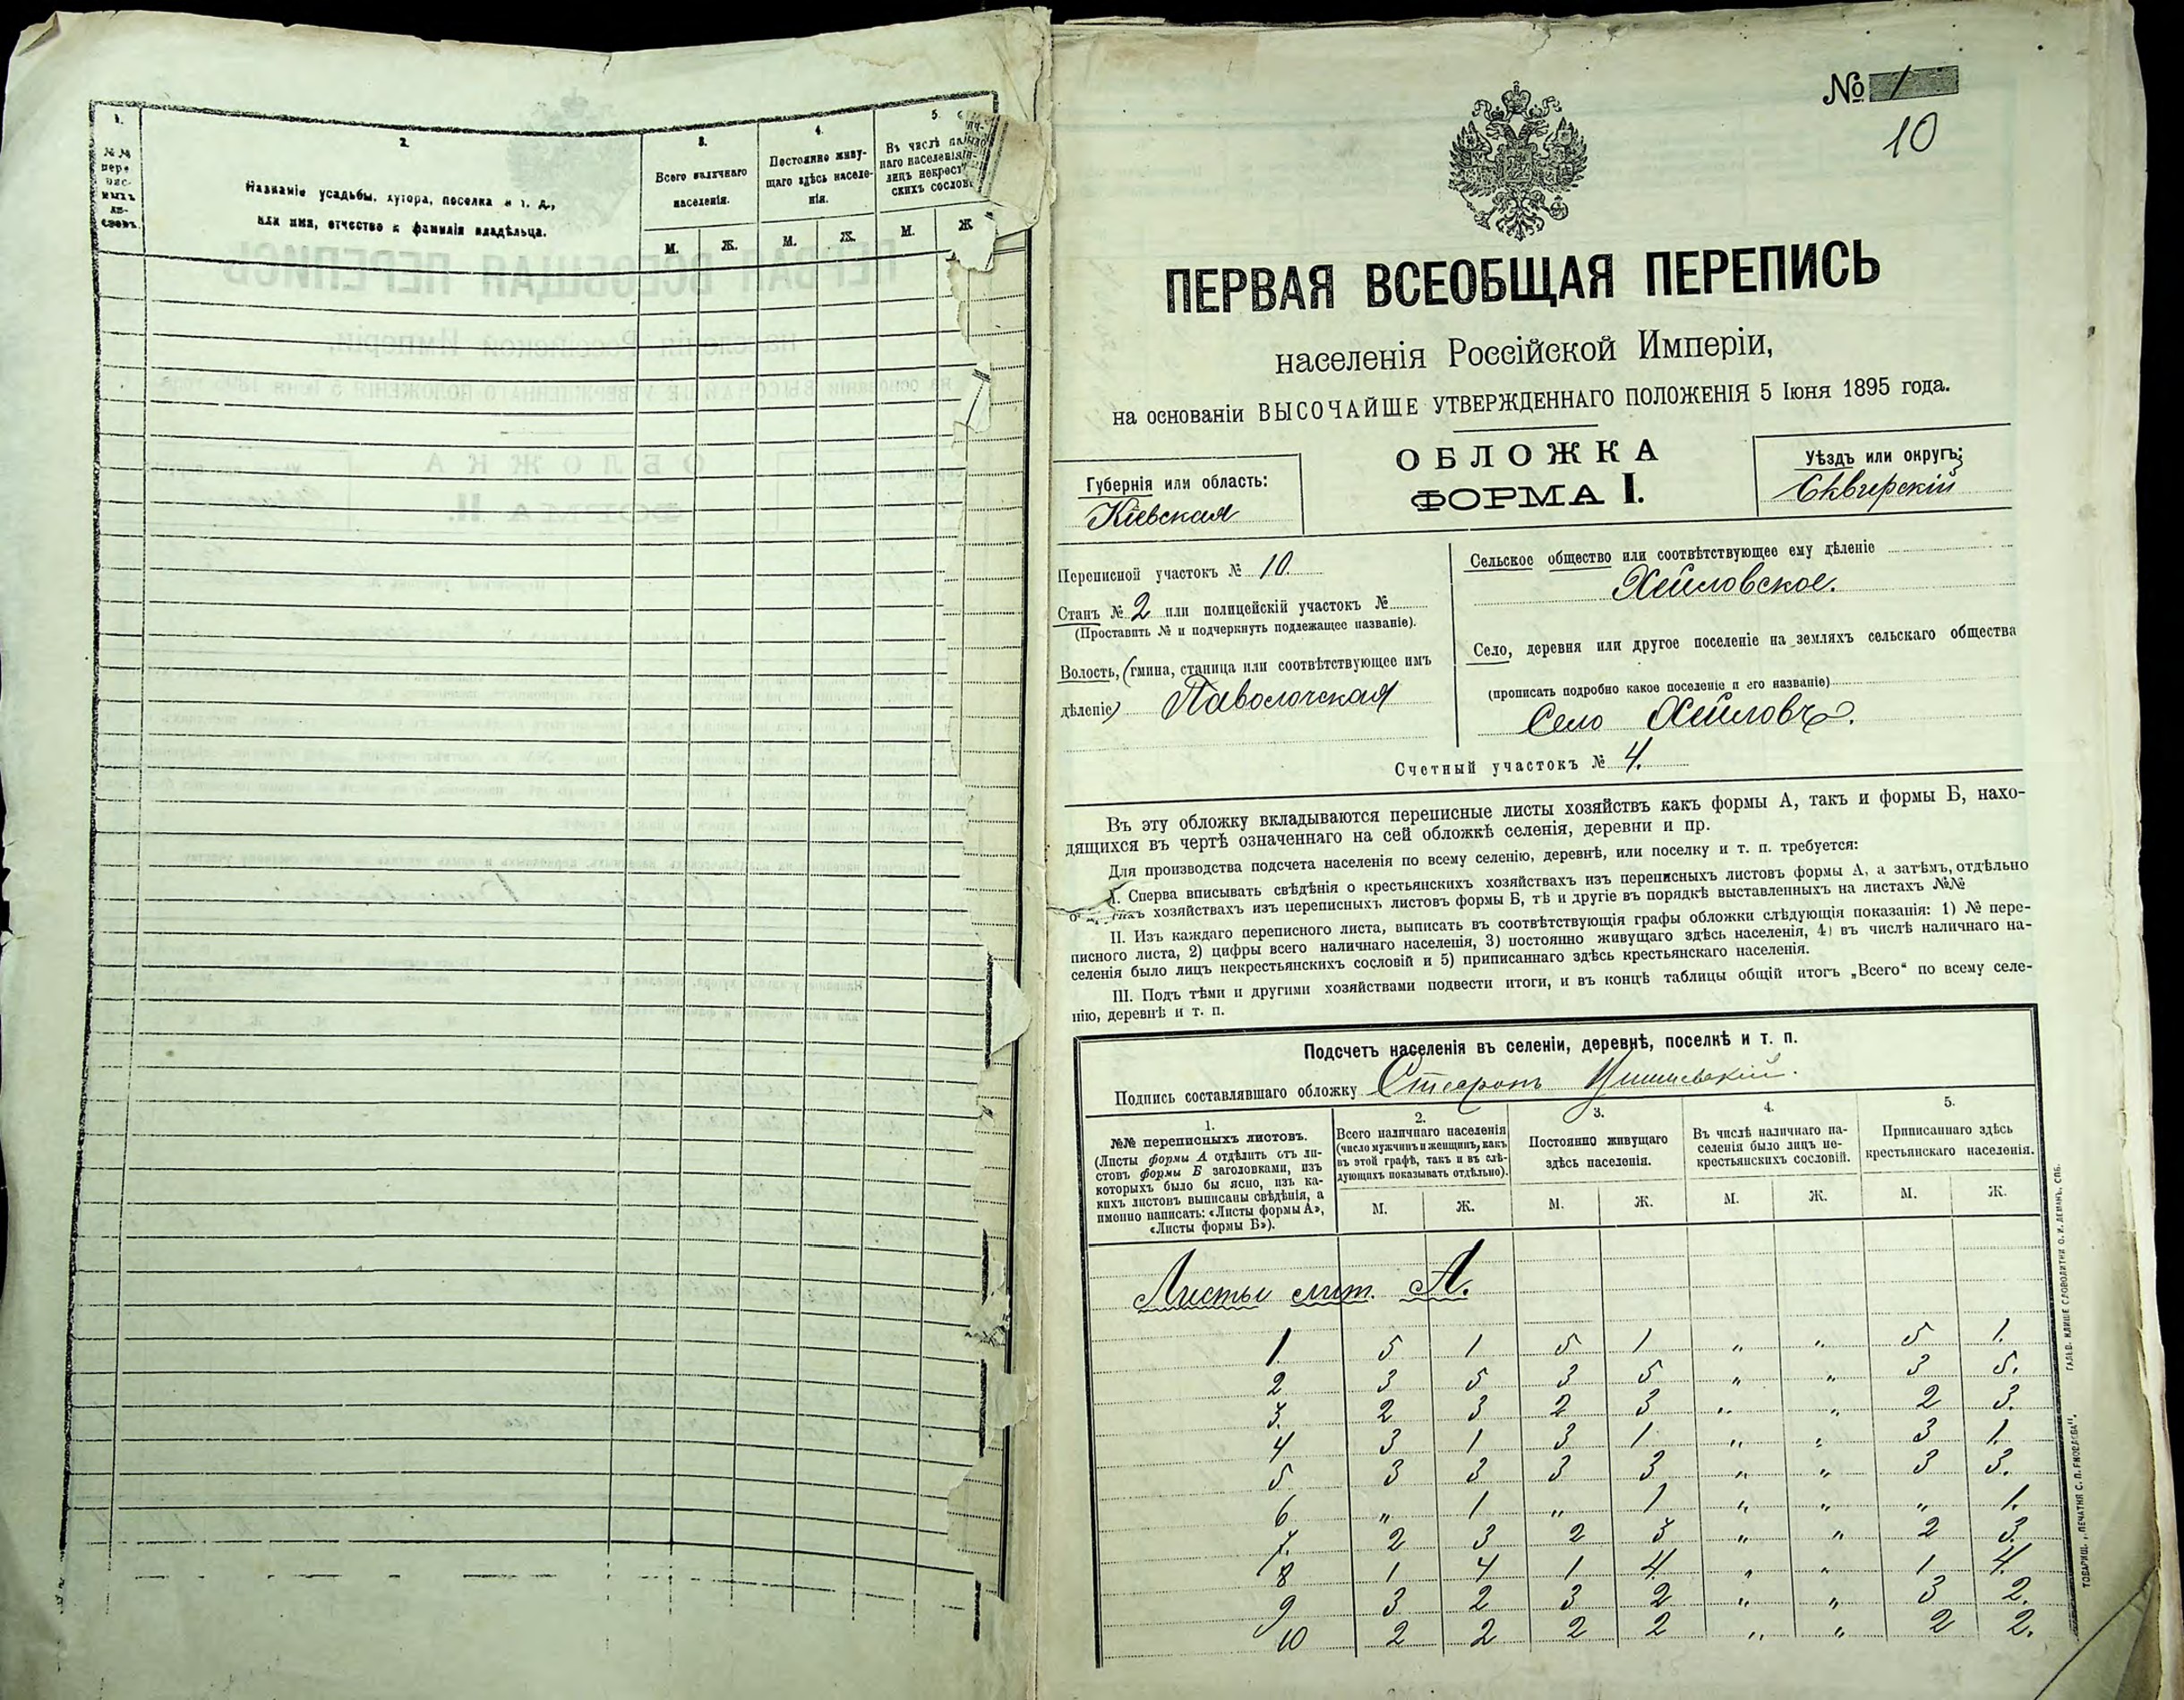 1.
№№ пере- пис- ныхъ ли- стовъ.
2.
Названіе усадьбы, хутора, поселка и т. д.,
или имя, отчество и фамилія владѣльца.
3.
Всего наличнаго
населенія.
М. Ж.
4.
Постоянно живу-
щаго здѣсь населе-
нія.
М. Ж.
5.
Въ числѣ
наго населенія
лицъ некрест
скихъ сослов
М. Ж.
№ 1
10
ПЕРВАЯ ВСЕОБЩАЯ ПЕРЕПИСЬ
населенія Россійской Имперіи,
на основаніи ВЫСОЧАЙШЕ УТВЕРЖДЕННАГО ПОЛОЖЕНІЯ 5 Іюня 1895 года.
ОБЛОЖКА
ФОРМА I.
Губернія или область:
Кіевская
Уѣздъ или округъ:
Сквирскій
Переписной участокъ № 10.
Станъ № 2 или полицейскій участокъ №
(Проставить № и подчеркнуть подлежащее названіе).
Волость, (гмина, станица или соотвѣтствующее имъ
дѣленіе) Паволочская
Сельское общество или соотвѣтствующее ему дѣленіе
Хейловское.
Село, деревня или другое поселеніе на земляхъ сельскаго общества
(прописать подробно какое поселеніе и его названіе)
Село Хейлово.
Счетный участокъ № 4.
Въ эту обложку вкладываются переписные листы хозяйствъ какъ формы А, такъ и формы Б, нахо-
дящихся въ чертѣ означеннаго на сей обложкѣ селенія, деревни и пр.
Для производства подсчета населенія по всему селенію, деревнѣ, или поселку и т. п. требуется:
I. Сперва вписывать свѣдѣнія о крестьянскихъ хозяйствахъ изъ переписныхъ листовъ формы А, а затѣмъ, отдѣльно
хозяйствахъ изъ переписныхъ листовъ формы Б, тѣ и другіе въ порядкѣ выставленныхъ на листахъ №№
II. Изъ каждаго переписного листа, выписать въ соотвѣтствующія графы обложки слѣдующія показанія: 1) № пере-
писного листа, 2) цифры всего наличнаго населенія, 3) постоянно живущаго здѣсь населенія, 4) въ числѣ наличнаго на-
селенія было лицъ некрестьянскихъ сословій и 5) приписаннаго здѣсь крестьянскаго населенія.
III. Подъ тѣми и другими хозяйствами подвести итоги, и въ концѣ таблицы общій итогъ „Всего“ по всему селе-
нію, деревнѣ и т. п.
Подсчетъ населенія въ селеніи, деревнѣ, поселкѣ и т. п.
Подпись составлявшаго обложку
1.
№№ переписныхъ листовъ.
(Листы формы А отдѣлить отъ ли-
стовъ формы Б заголовками, изъ
которыхъ было бы ясно, изъ ка-
кихъ листовъ выписаны свѣдѣнія, а
именно написать: «Листы формы А»,
«Листы формы Б»).
2.
Всего наличнаго населенія
(число мужчинъ и женщинъ, какъ
въ этой графѣ, такъ и въ слѣ-
дующихъ показывать отдѣльно).
М. Ж.
3.
Постоянно живущаго
здѣсь населенія.
М. Ж.
4.
Въ числѣ наличнаго на-
селенія было лицъ не-
крестьянскихъ сословій.
М. Ж.
5.
Приписаннаго здѣсь
крестьянскаго населенія.
М. Ж.
Листы лит. А.
1. 5 1 5 1 „ „ 5 1.
2 3 5 3 5 „ „ 3 5.
3. 2 3 2 3 „ „ 2 3.
4 3 1 3 1 „ „ 3 1.
5 3 3 3 3 „ „ 3 3.
6 „ 1 „ 1 „ „ „ 1.
7. 2 3 2 3 „ „ 2 3.
8 1 4 1 4 „ „ 1 4.
9 3 2 3 2 „ „ 3 2.
10 2 2 2 2 „ „ 2 2.